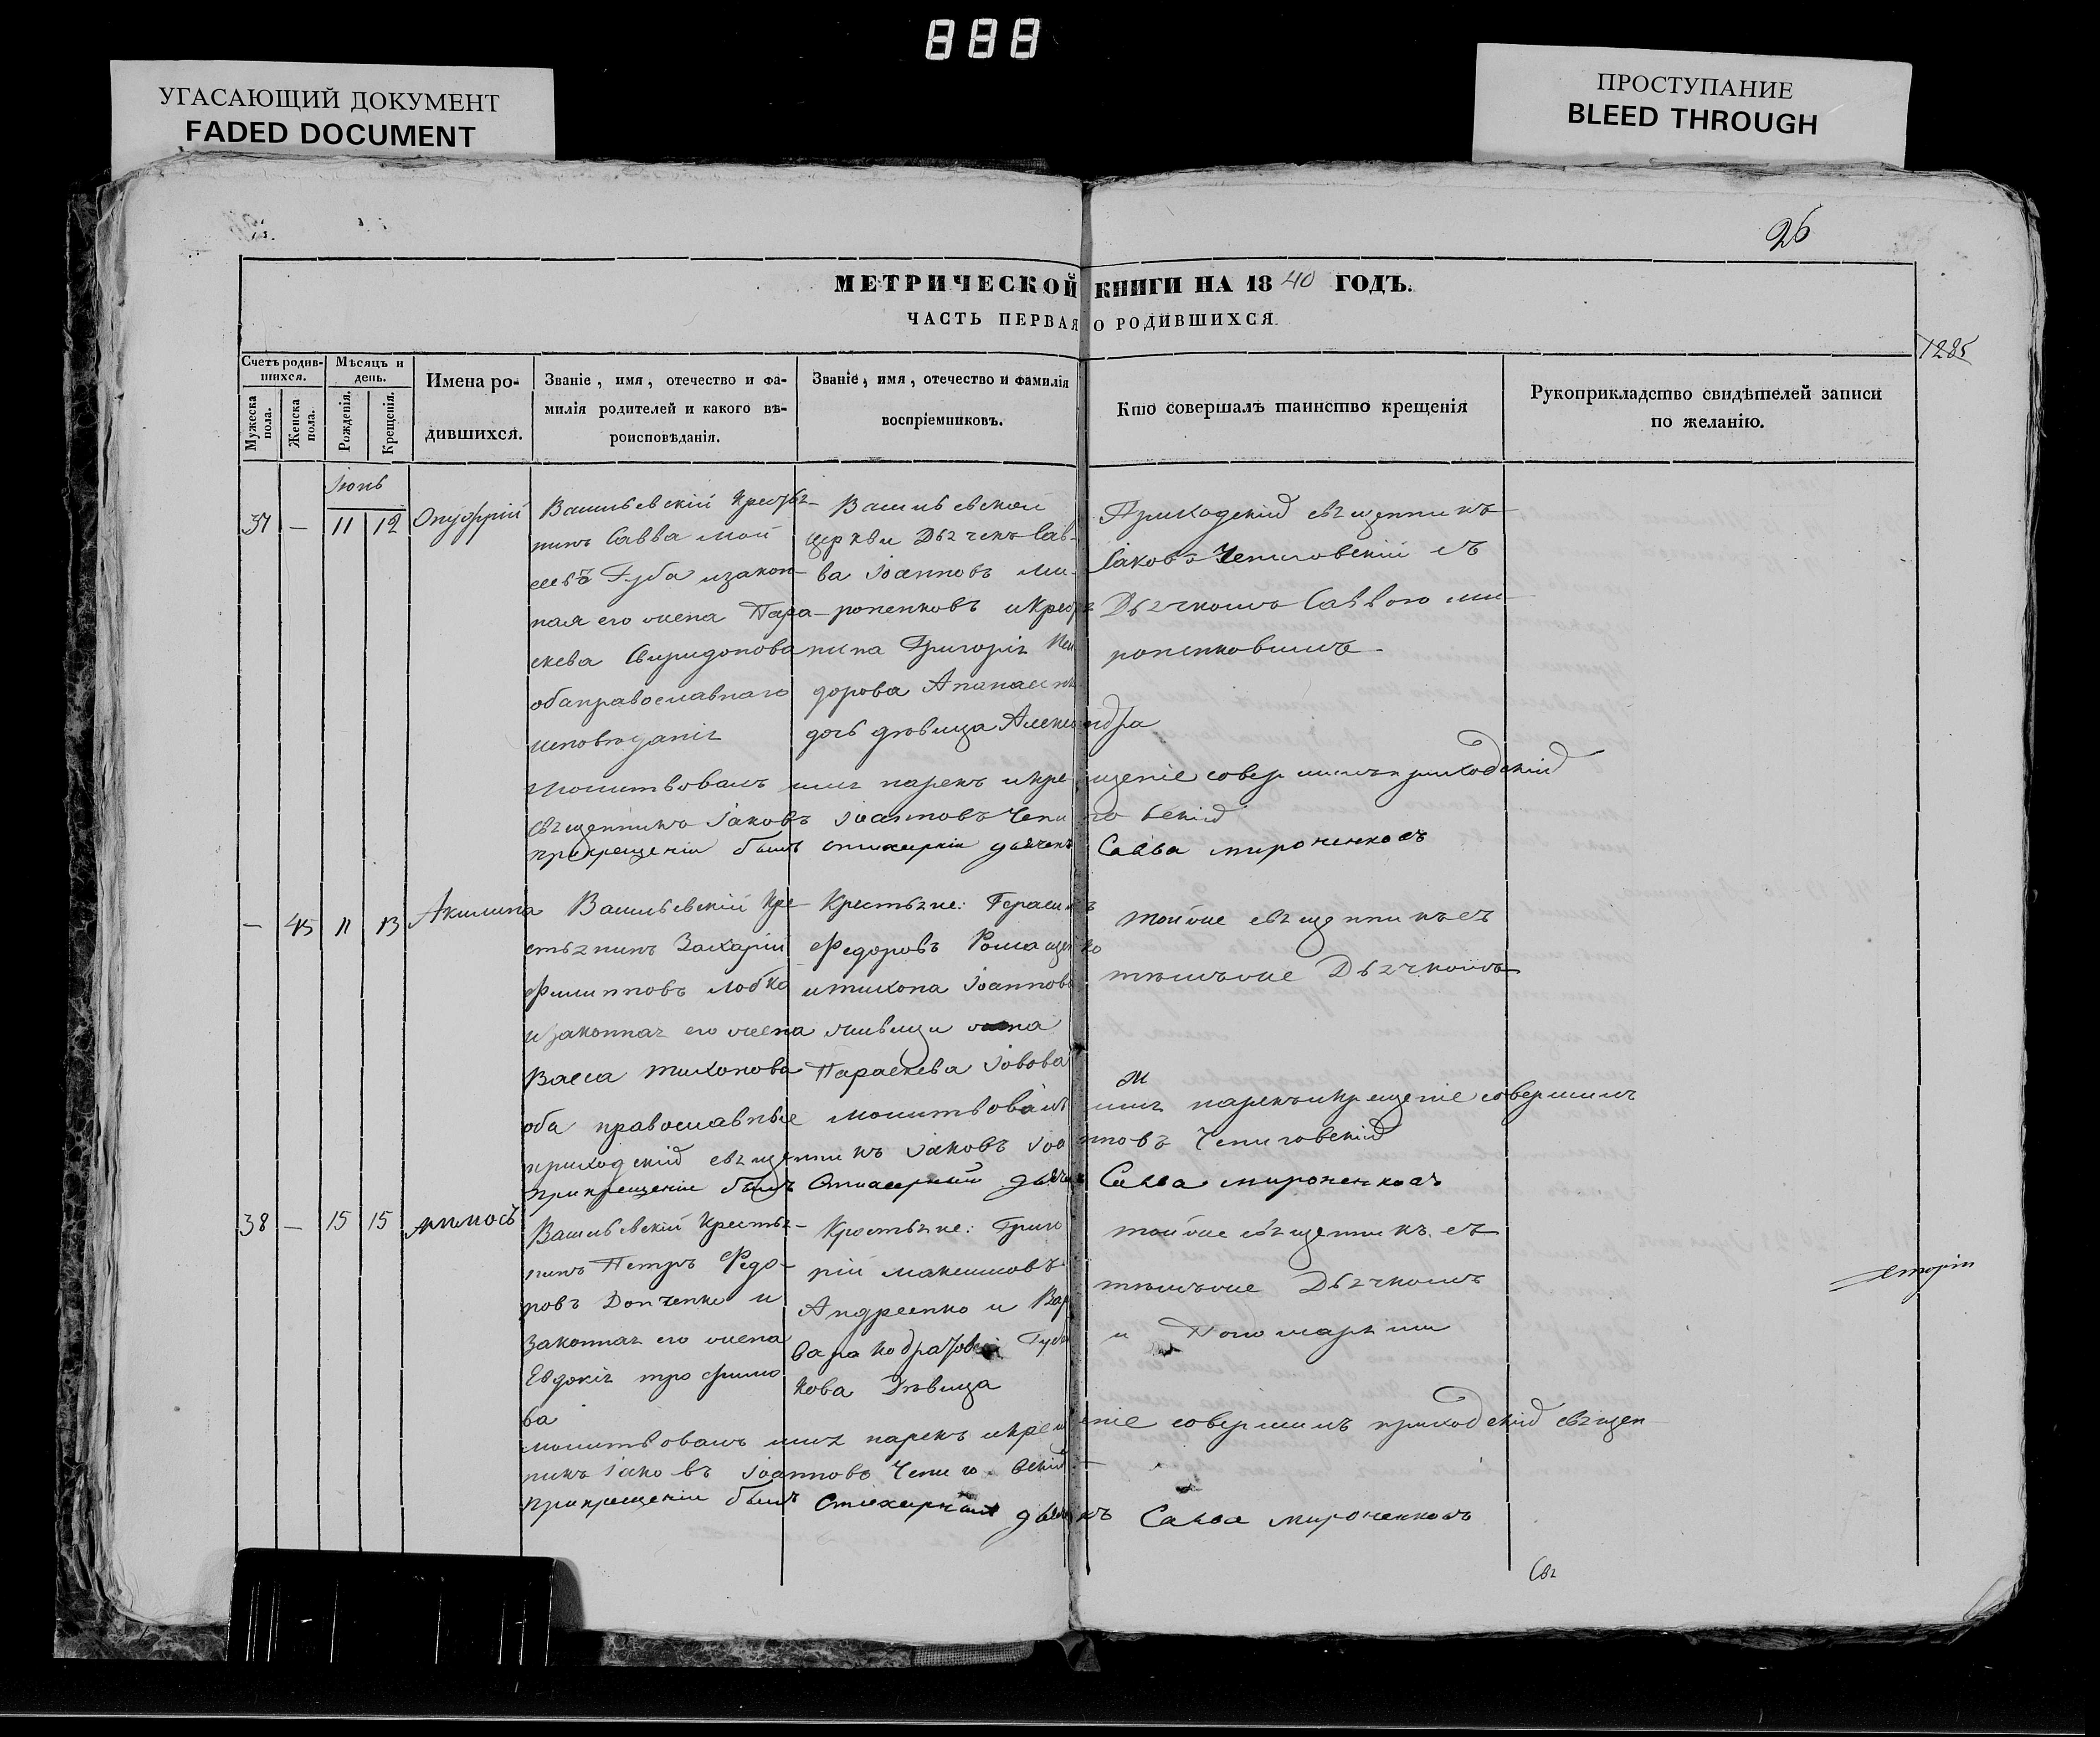 888
УГАСАЮЩИЙ ДОКУМЕНТ
FADED DOCUMENT
ПРОСТУПАНИЕ
BLEED THROUGH
26
МЕТРИЧЕСКОЙ КНИГИ НА 1840 ГОДЪ.
ЧАСТЬ ПЕРВАЯ О РОДИВШИХСЯ.
1285
Счетъ родив-
шихся.
Мужеска пола.
Женска пола.
Мѣсяцъ и
день.
Рожденія.
Крещенія.
Имена ро-
дившихся.
Званіе, имя, отечество и фа-
милія родителей и какого вѣ-
роисповѣданія.
Званіе, имя, отечество и фамилія
воспріемниковъ.
Кто совершалъ таинство крещенія
Рукоприкладство свидѣтелей записи
по желанію.
Іюнь
37 — 11 12 Онуфрій
Васильевскій крестья-
нинъ Савва Мой
сеевъ Губа и закон-
ная его жена Пара-
скева Свиридонова
оба православнаго
исповѣданія
Васильевской
церкви Дьячекъ Сав-
ва Іоанновъ Ми-
роненковъ и крестья
нина Григорія
дорова
дочь дѣвица Александра
Приходскій священникъ
Іаковъ Чепиговскій съ
Дьячкомъ Саввою Ми-
роненковымъ
Молитвовалъ имя нарекъ и крещеніе совершилъ приходскій
священникъ Іаковъ Іоанновъ Чепиговскій
При крещеніи былъ стихарній дьячекъ Савва Мироненковъ
— 45 11 13 Акилина
Васильевскій кре-
стьянинъ Захарій
Филипповъ Лобко
и законная его жена
Васса Тихонова
оба православные
Крестьяне: Герасимъ
Федоровъ Ромащенко
и Тихона Іоаннова
жена
Параскева Іовова
Тойже священникъ съ
тѣмъже Дьячкомъ
Молитвовалъ имя нарекъ и крещеніе совершилъ
приходскій священникъ Іаковъ Іоанновъ Чепиговскій
При крещеніи былъ Стихарній дьячекъ Савва Мироненковъ
38 — 15 15
Васильевскій крестья-
нинъ Петръ Федо-
ровъ Донченко и
законная его жена
Евдокія Трофимо
ва
Крестьяне: Григо
рій Максимовъ
Андреенко и Вар
вара
кова Дѣвица
Тойже священникъ съ
тѣмъже Дьячкомъ
и Пономарями
Молитвовалъ имя нарекъ и крещеніе совершилъ приходскій священ
никъ Іаковъ Іоанновъ Чепиговскій
При крещеніи былъ Стихарній дьячекъ Савва Мироненковъ
Свя